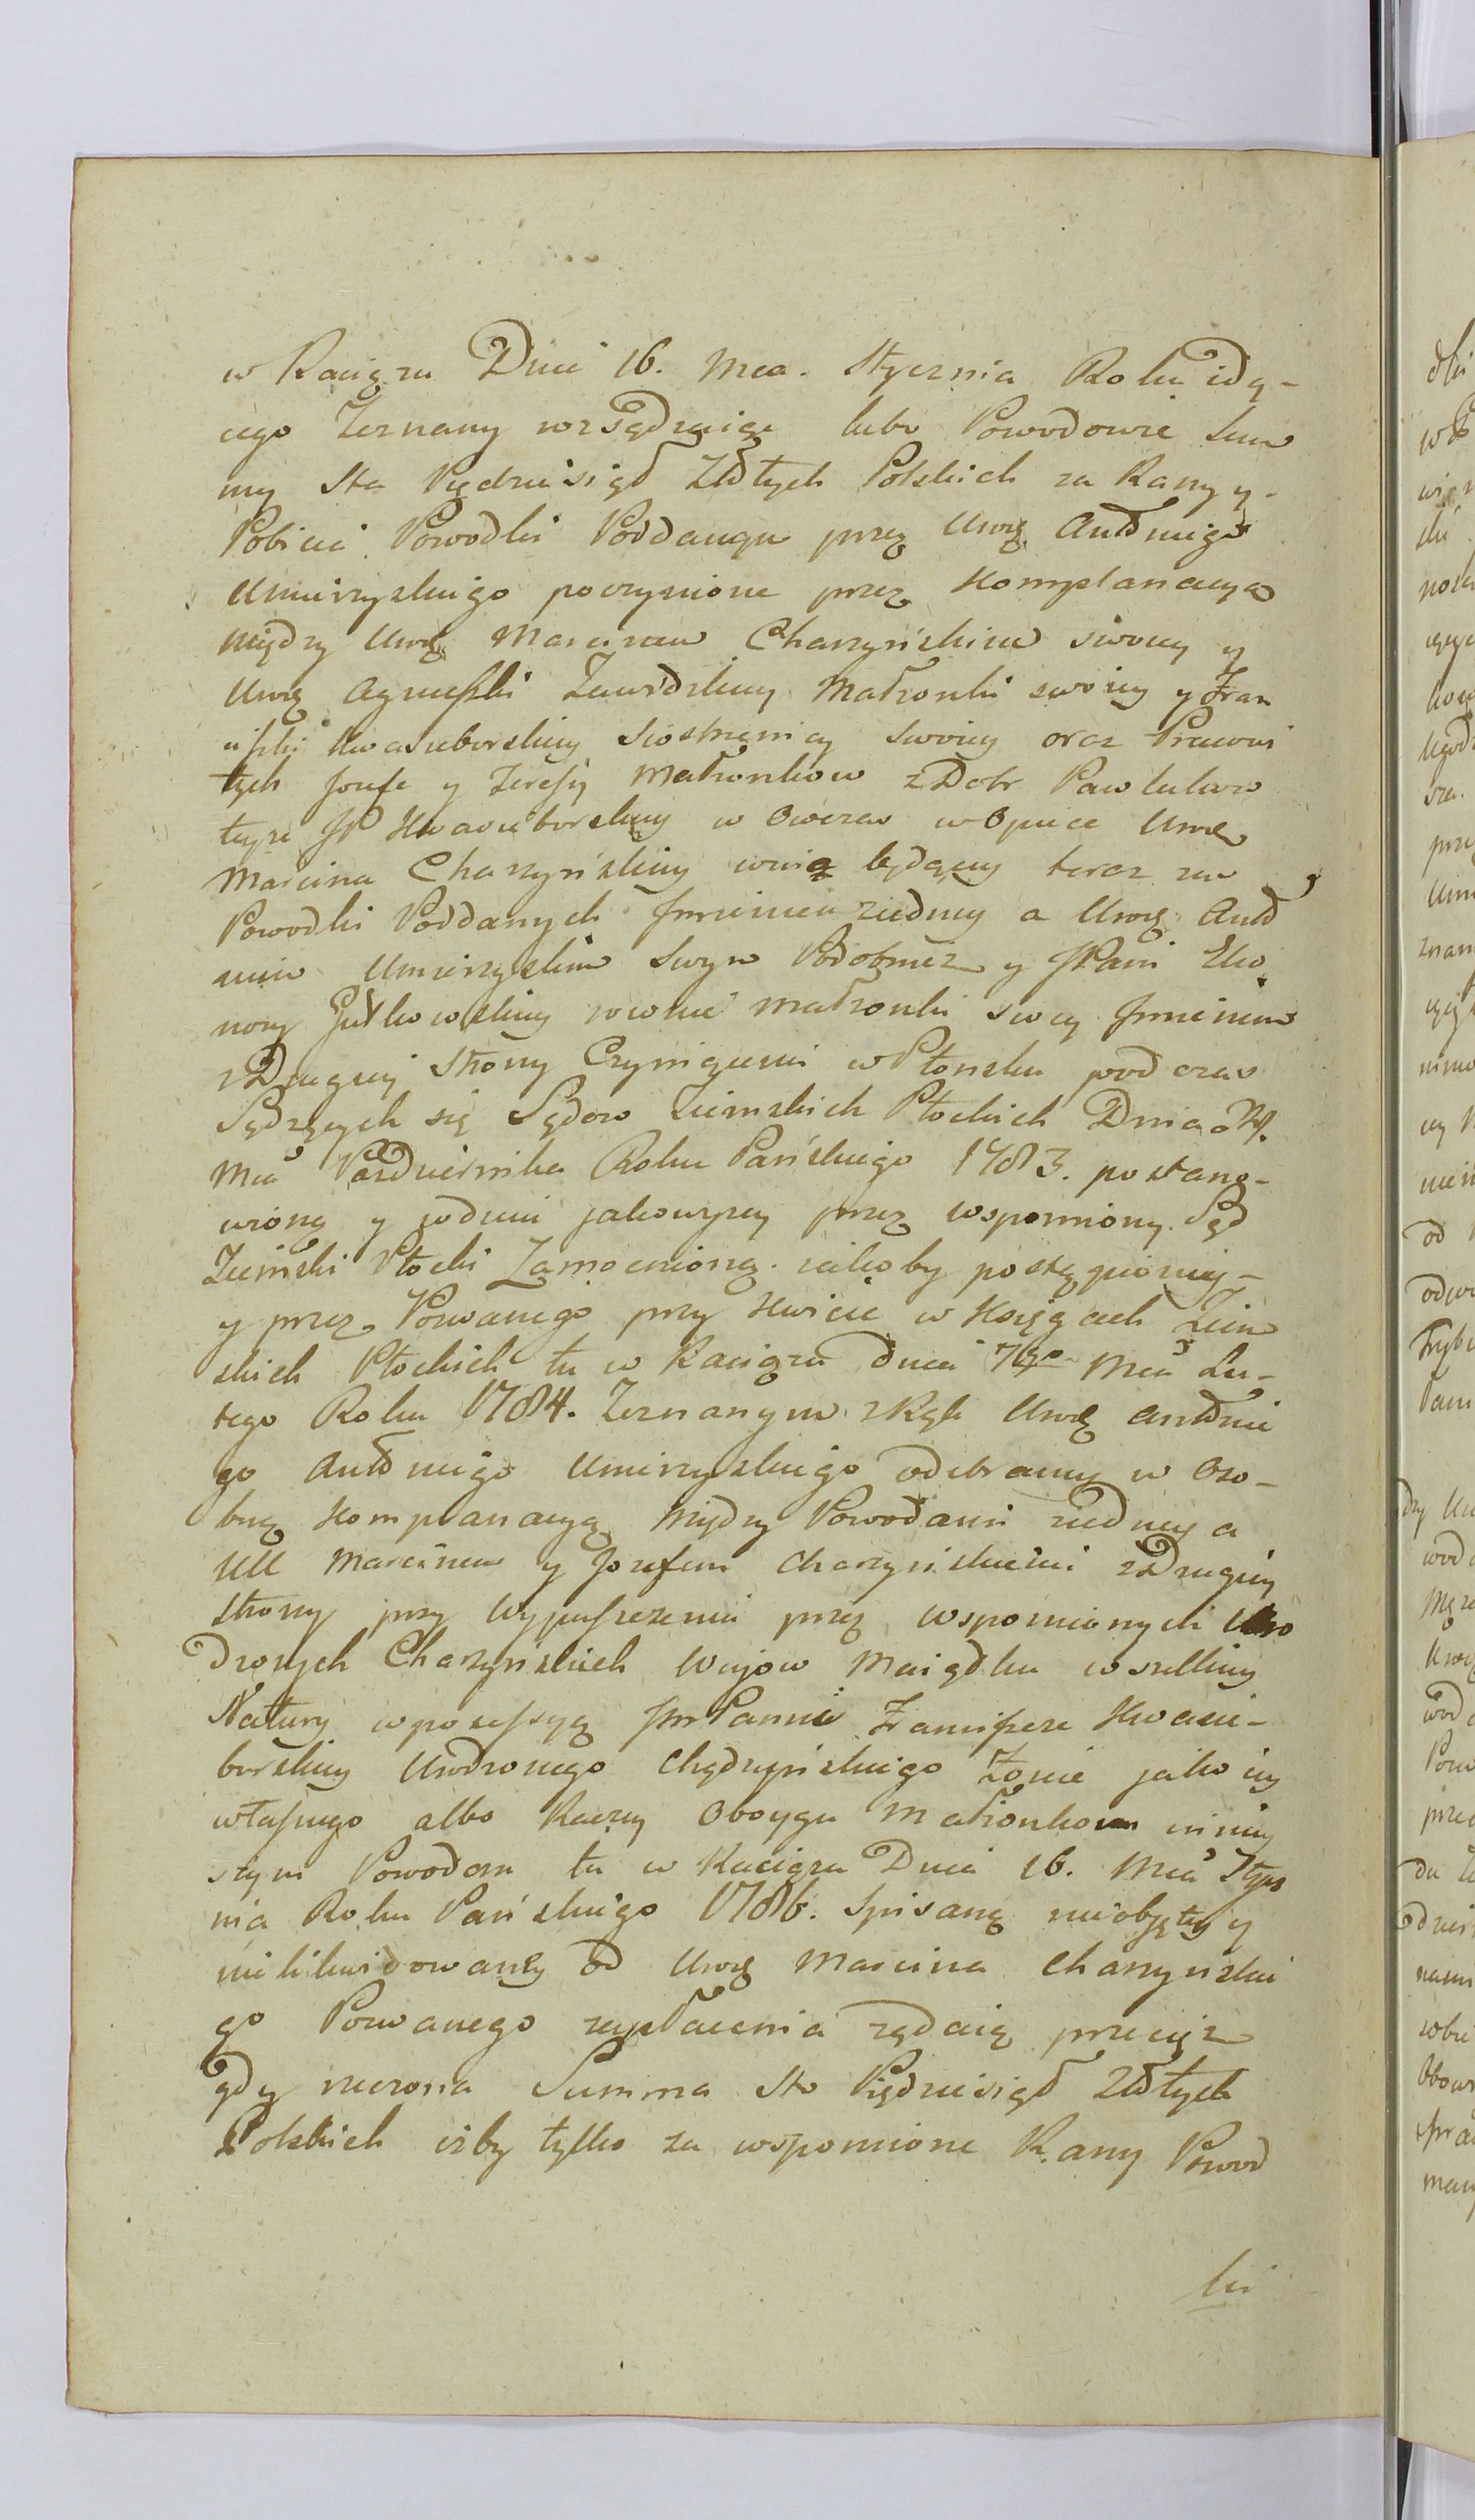 w Raciązu Dnia 16. Mca. Stycznia Roku idą-
cego Zeznany rozsądzaiąc lubo Powodowie Sum
my Sta Pięćdziesiąd Złłtych Polskich za Rany y
Pobicie Powodki Poddanyu przez Urog Anttniego
Umieryskiego poczynione przez Komplanacyą
między Urog Marcinem Charzyńskim swoiey y
Urog Agnieszki Zawidzkiey Małżonki swoiey y Fran
ciszki Kwasieborskiey Siostrzenicy swoiey oraz Pracowi
tych Jozefa y Teressy Małżonkow z Dobr Pawlukow
teyże JP Kwasieborskiey w Owczas w Opiece Urog
Marcina Charzyńskiey będącey teraz zas
Powodki Poddanych Jmieniem ziedney a Urog Antt
nim Umieryskim Swym Podobnież y JPani Eleo
nory Gutkowskiey Małżonki swey Jmieniem
z Drugiey Strony Czyniącemi w Płonsku podczas
Sądzących się Sądow Ziemskich Płockich Dnia
Mca Pazdziernika Roku Pańskiego 1783. postano-
wioną y w dniu jakowyzey przez wspomniony Sąd
Ziemski Płocki Zamocnioną iakoby postąpioney
y przez Pozwanego przy Kwicie w Xsięgach Ziem
skich Płockich tu w Raciązu dnia 7go Mca Lu-
tego Roku 1784. Zeznanym z Rąk Urog Anttnie
go Anttniego Umieryskiego odebraney w Oso-
bną Komplanacyą między Powodami ziedney a
UU Marcinem y Jozefem Charzyńskiemi z Drugiey
strony przy Wypuszczeniu przez wspomnionych Uro
dzonych Charzyńskich Wujow Maiądku wszelkiey
Natury w possessyą Jm Pannie Franciszce Kwasie-
borskiey Urodzonego Chądzyńskiego Żonie jako iey
własnego albo Raczey Oboyga Małżonkom niniey
szym Powodom tu w Raciązu Dnia 16. Mca Stycz
nia Roku Pańskiego 1786. Spisaną nieobjętey y
nielikwidowaney od Urog Marcina Charzyński
go Pozwanego zapłacenia ządaią przecięz
gdy rzeczona Summa Sto Pięćdziesiąd Złłtych
Polskich izby tylko za wspomnione Rany Powod
ki